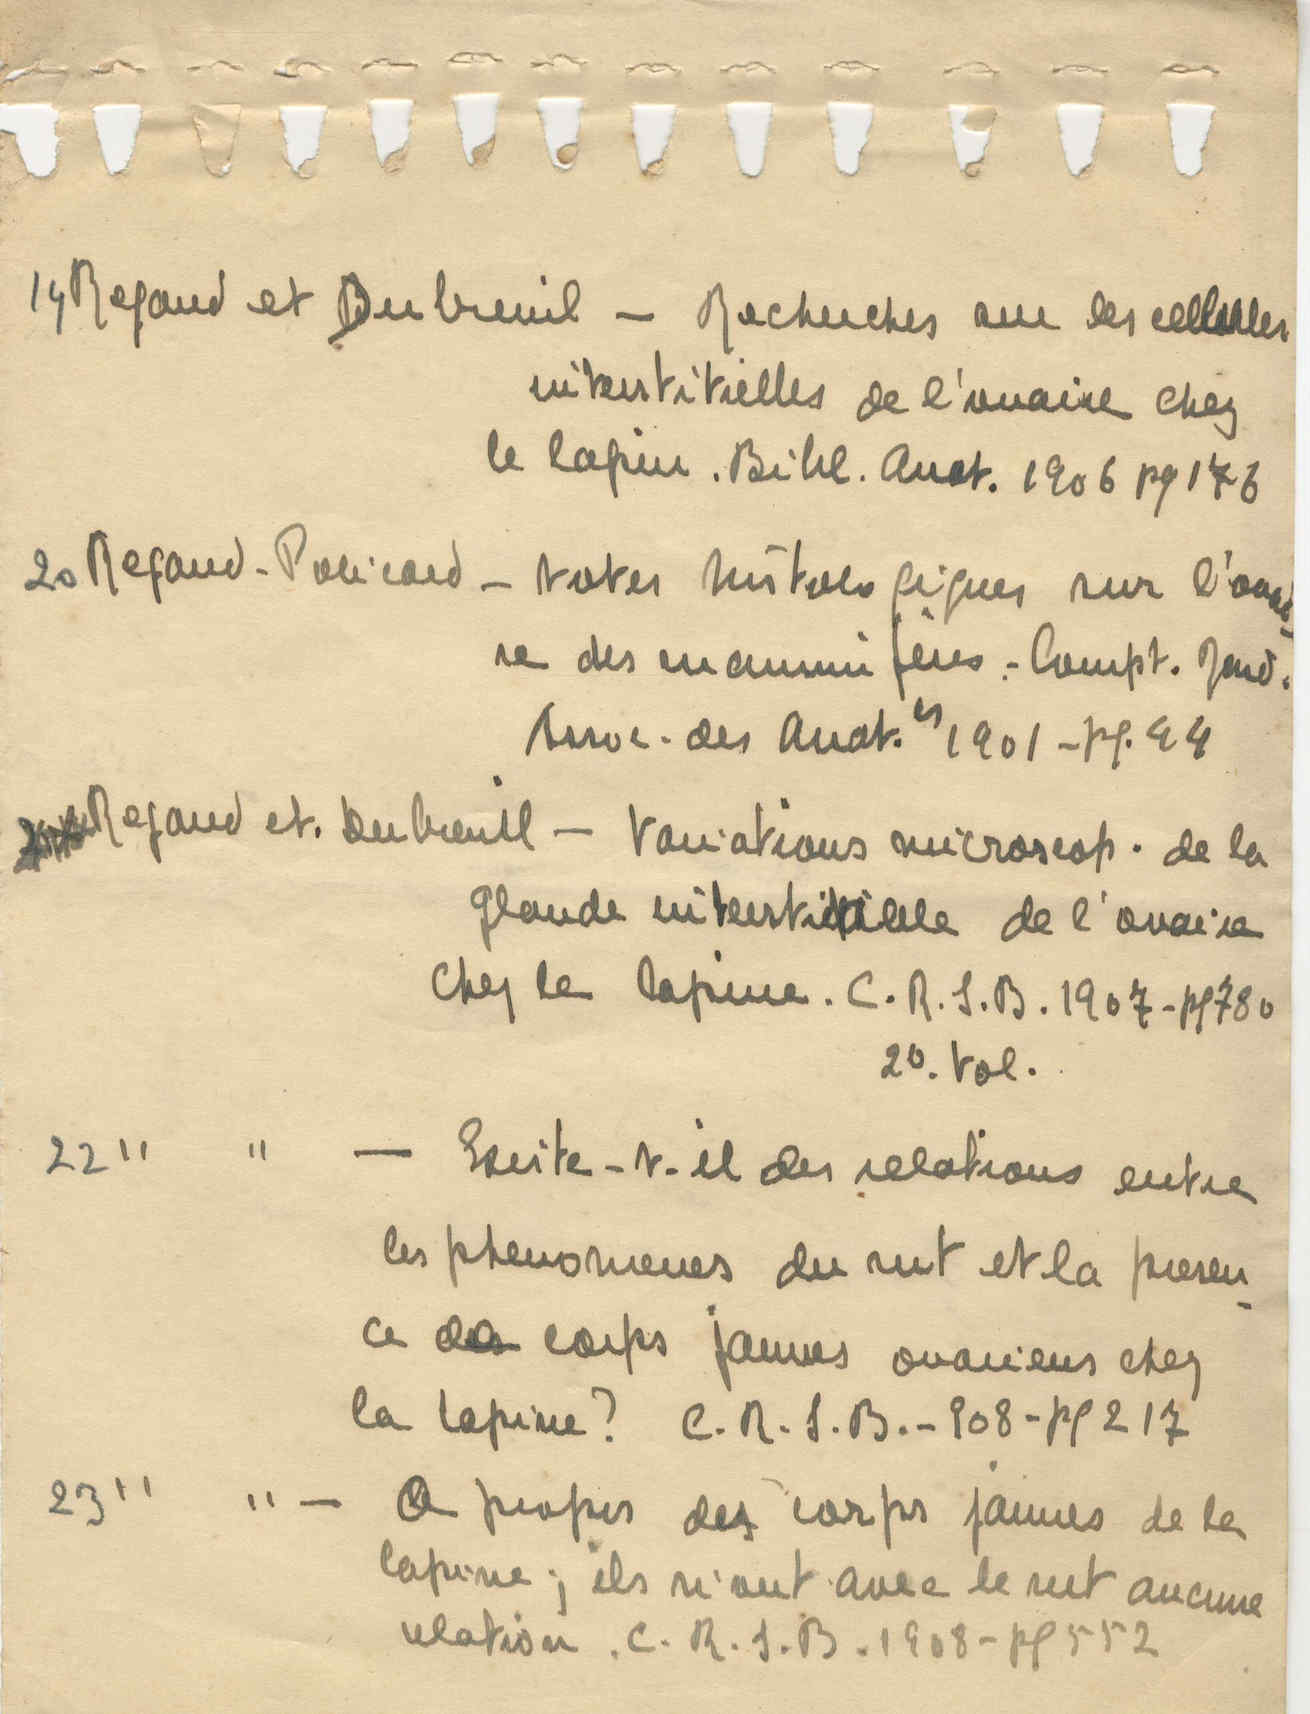 19 Regaud et Dubreuil — Recherches sur les cellules
interstitielles de l'ovaire chez
le lapin. Bibl. Anat. 1906 pg 176
20 Regaud - Policard - Notes histologiques sur l'ovai-
re des mammifères - Compt. Rend.
Assoc. des Anat.es 1901 - pg. 44
Regaud et. Dubreuil — Variations microscop. de la
glande interstitielle de l'ovaire
chez la lapine. C. R. S. B. 1907 - pg 780
20. Vol.
22 " " — Existe-t-il des relations entre
les phenomenes du rut et la presen-
ce des corps jaunes ovariens chez
la lapine? C. R. S. B. - 908 - pg 217
23 " " — A propos des corps jaunes de la
lapine; ils n'ont avec le rut aucune
relation. C. R. S. B. 1908 - pg 552